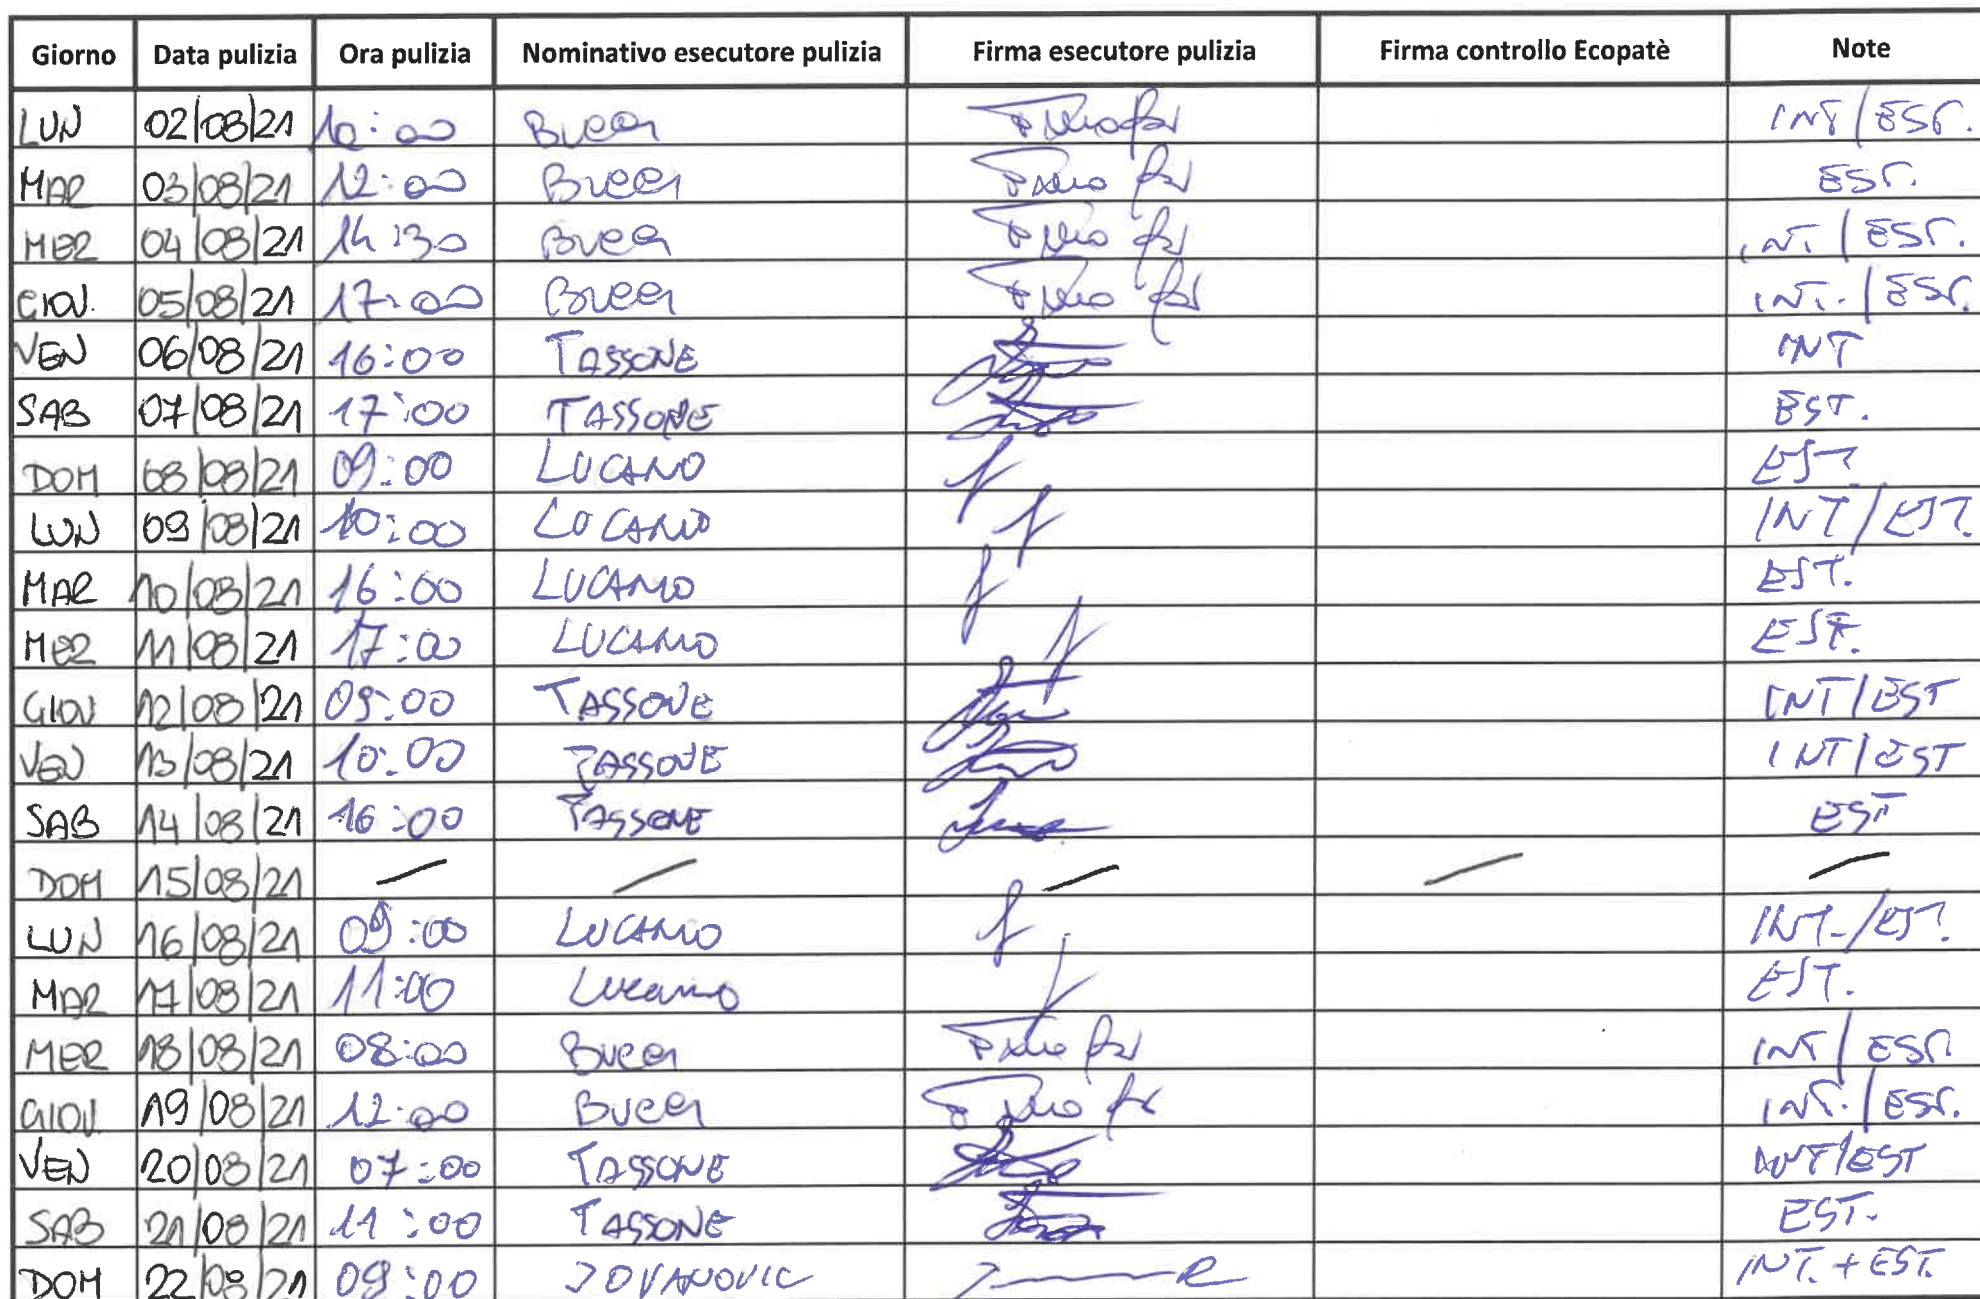 Giorno Data pulizia Ora pulizia Nominativo esecutore pulizia Firma esecutore pulizia Firma controllo Ecopatè Note
LUN 02/08/21 10:00 Bucci INT/EST.
MAR 03/08/21 12:00 Bucci EST.
MER 04/08/21 14:30 Bucci INT/EST.
GIOV. 05/08/21 17:00 Bucci INT./EST.
VEN 06/08/21 16:00 TASSONE INT
SAB 07/08/21 17:00 TASSONE EST.
DOM 08/08/21 09:00 LUCANO EST
LUN 09/08/21 10:00 LUCANO INT/EST.
MAR 10/08/21 16:00 LUCANO EST.
MER 11/08/21 17:00 LUCANO EST.
GIOV 12/08/21 09:00 TASSONE INT/EST
VEN 13/08/21 10:00 TASSONE INT/EST
SAB 14/08/21 16:00 TASSONE EST
DOM 15/08/21 / / / / /
LUN 16/08/21 09:00 LUCANO INT./EST.
MAR 17/08/21 11:00 Lucano EST.
MER 18/08/21 08:00 Bucci INT/EST.
GIOV. 19/08/21 12:00 Bucci INT./EST.
VEN 20/08/21 07:00 TASSONE INT/EST
SAB 21/08/21 11:00 TASSONE EST.
DOM 22/08/21 09:00 JOVANOVIC INT. + EST.